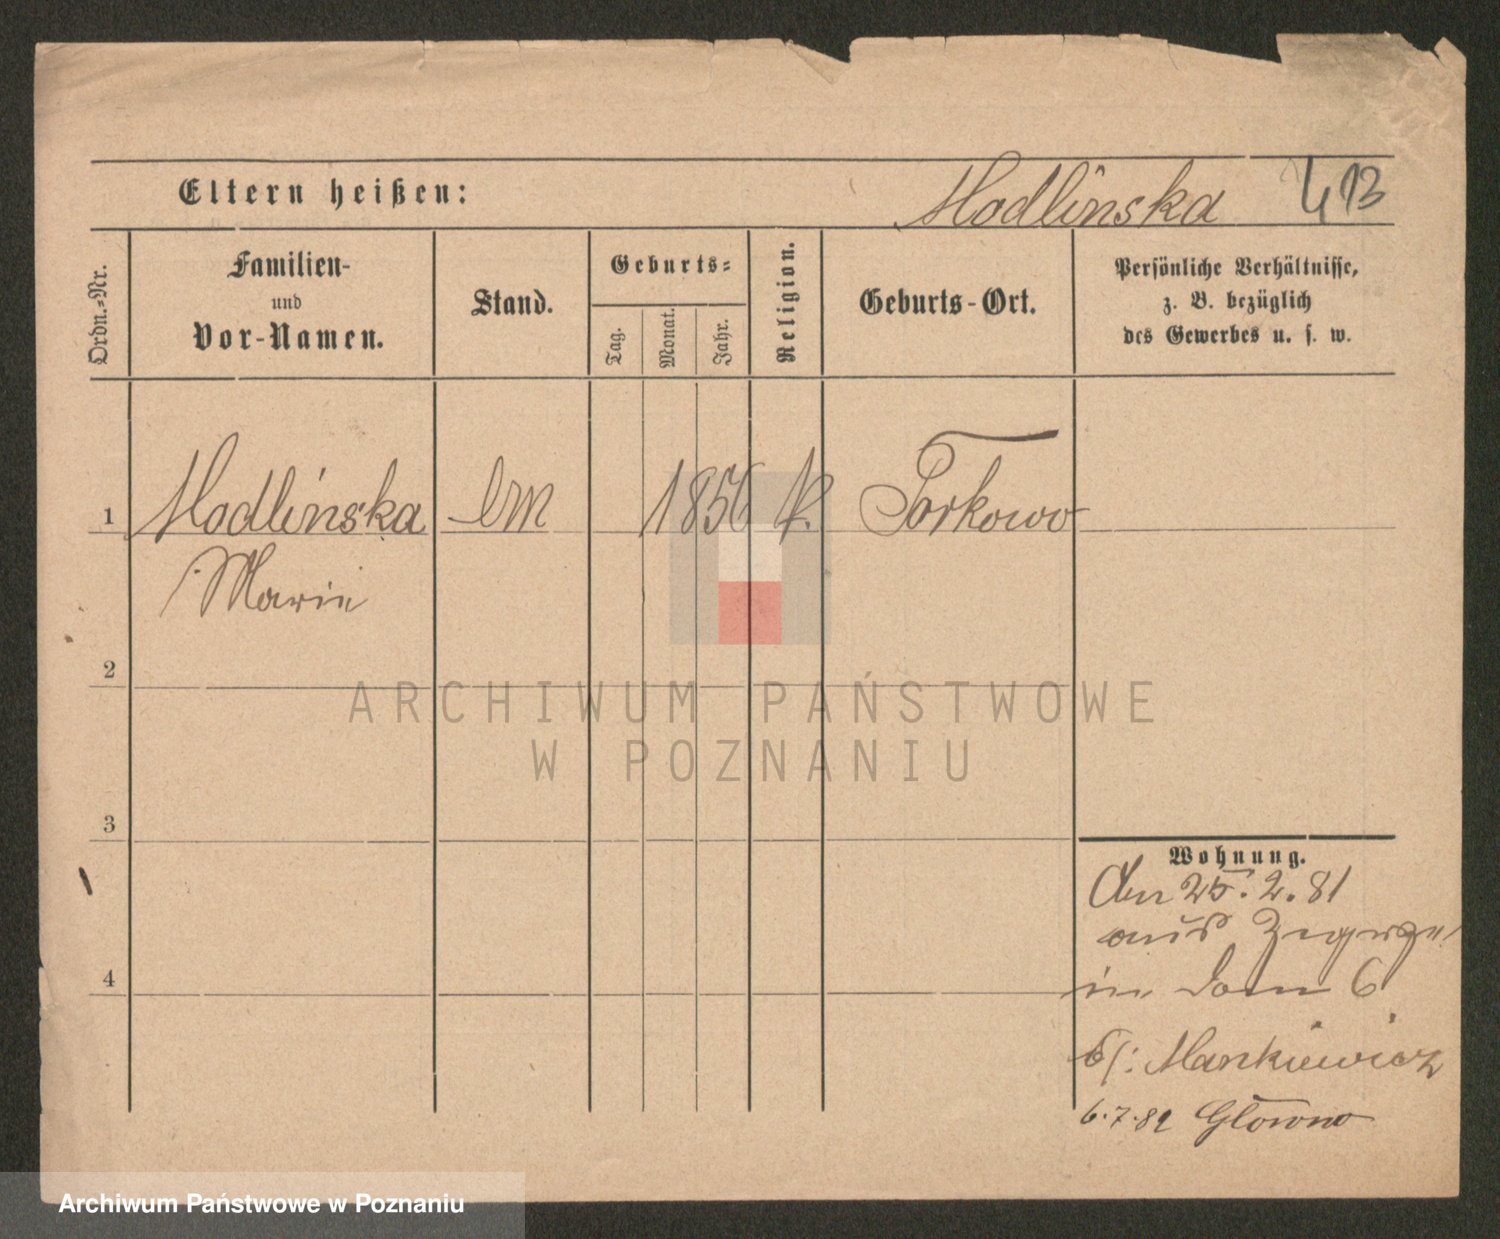 Eltern heißen:
Modlinska 413
Ordn.-Nr.
Familien-
und
Vor-Namen.
Stand.
Geburts-
Tag.
Monat.
Jahr.
Religion.
Geburts-Ort.
Persönliche Verhältnisse,
z. B. bezüglich
des Gewerbes u. s. w.
1 Modlińska 1856 k.
Marie
2
3
4
Wohnung.
Den 25.2.81
aus
in Dom 6
b/: Mankiewicz
6.7.82 Główno
ARCHIWUM PAŃSTWOWE
W POZNANIU
Archiwum Państwowe w Poznaniu